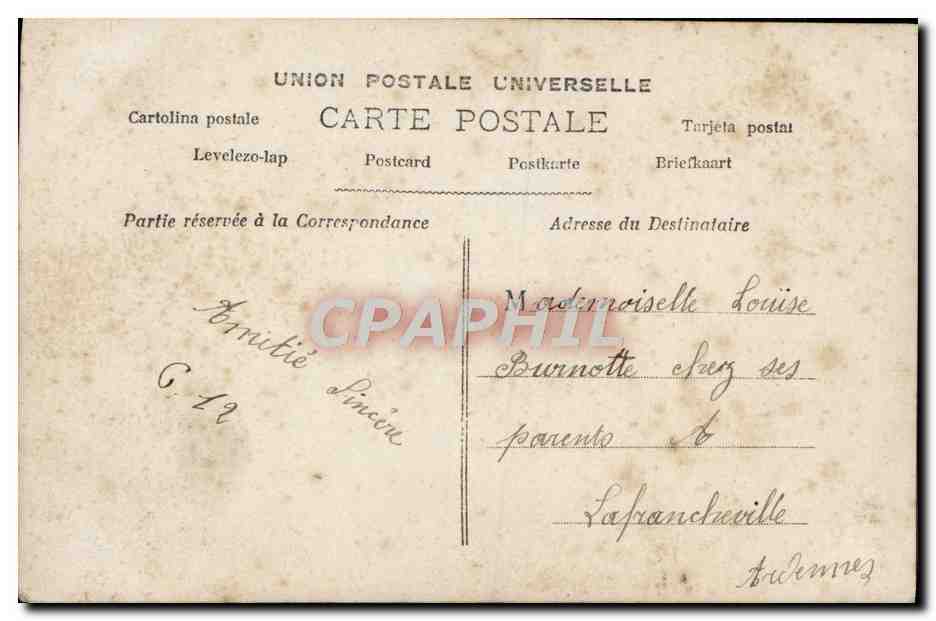 UNION POSTALE UNIVERSELLE
CARTE POSTALE
Cartolina postale
Tarjeta postal
Levelezo-lap
Postcard
Postkarte
Briefkaart
Partie réservée à la Correspondance
Adresse du Destinataire
Amitié Sincère
12
Mademoiselle Louise
Burnotte chez ses
parents A
Lafrancheville
Ardennes
CPAPHIL